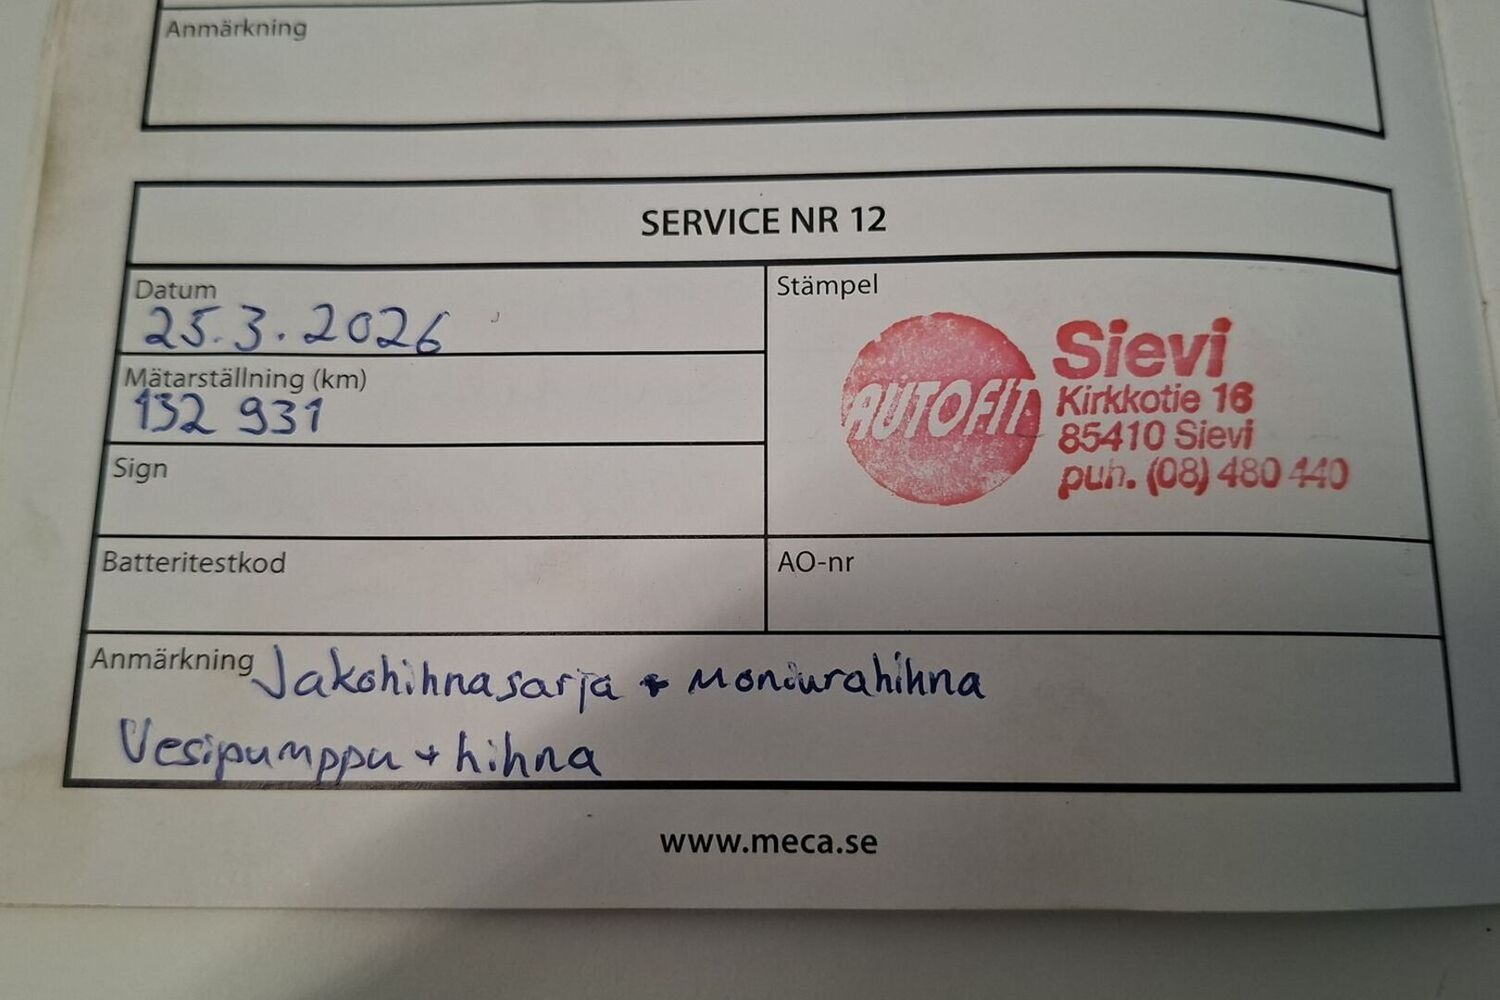 Anmärkning
SERVICE NR 12
Datum
25.3.2026
Mätarställning (km)
132 931
Sign
Stämpel
AUTOFIT
Sievi
Kirkkotie 16
85410 Sievi
puh. (08) 480 440
Batteritestkod
AO-nr
Anmärkning Jakohihnasarja + Moniurahihna
Vesipumppu + hihna
www.meca.se